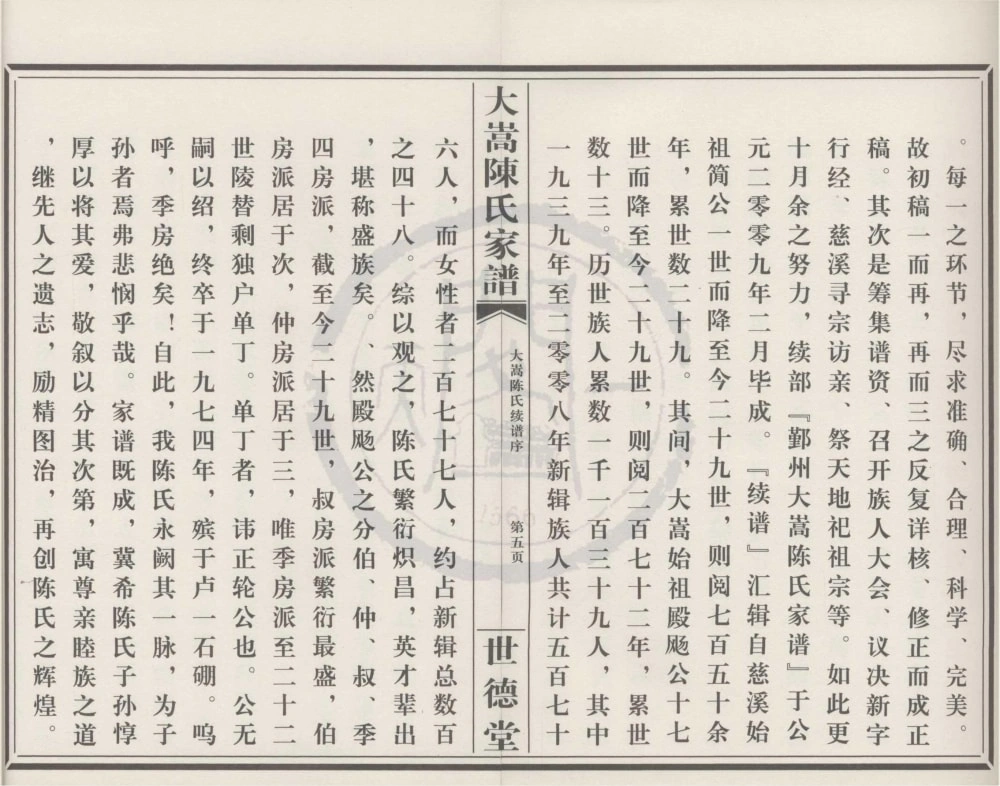 。每一之环节，尽求准确、合理、科学、完美。
故初稿一而再，再而三之反复详核、修正而成正
稿。其次是筹集谱资、召开族人大会、议决新字
行经、慈溪寻宗访亲、祭天地祀祖宗等。如此更
十月余之努力，续部『鄞州大嵩陈氏家谱』于公
元二零零九年二月毕成。『续谱』汇辑自慈溪始
祖简公一世而降至今二十九世，则阅七百五十余
年，累世数二十九。其间，大嵩始祖殿飏公十七
世而降至今二十九世，则阅二百七十二年，累世
数十三。历世族人累数一千一百三十九人，其中
一九三九年至二零零八年新辑族人共计五百七十
大嵩陳氏家譜
大嵩陈氏续谱序
第五页
世德堂
六人，而女性者二百七十七人，约占新辑总数百
之四十八。综以观之，陈氏繁衍炽昌，英才辈出
，堪称盛族矣。、然殿飏公之分伯、仲、叔、季
四房派，截至今二十九世，叔房派繁衍最盛，伯
房派居于次，仲房派居于三，唯季房派至二十二
世陵替剩独户单丁。单丁者，讳正轮公也。公无
嗣以绍，终卒于一九七四年，殡于卢一石硼。呜
呼，季房绝矣！自此，我陈氏永阙其一脉，为子
孙者焉弗悲悯乎哉。家谱既成，冀希陈氏子孙惇
厚以将其爱，敬叙以分其次第，寓尊亲睦族之道
，继先人之遗志，励精图治，再创陈氏之辉煌。
1566